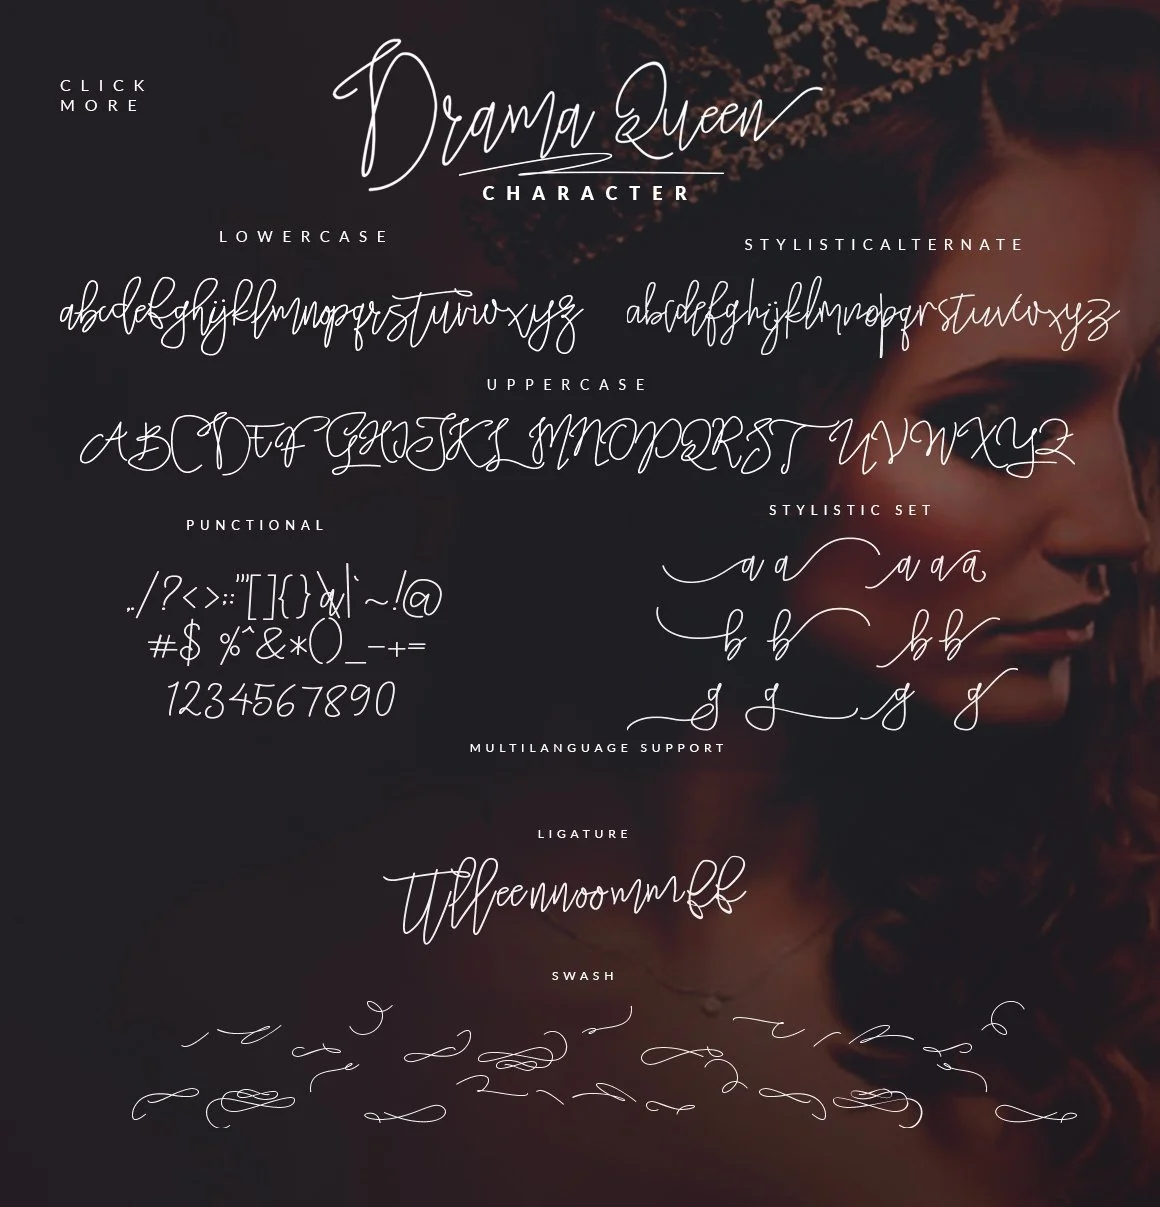 CLICK
MORE
Drama Queen
CHARACTER
LOWERCASE
STYLISTICALTERNATE
abcdefghijklmnopqrstuvwxyz
abcdefghijklmnopqrstuvwxyz
UPPERCASE
ABCDEFGHIJKLMNOPQRSTUVWXYZ
PUNCTIONAL
STYLISTIC SET
a a a a a
,./?<>;:"'[]{}\|`~!@
b b b b
#$%^&*()_-+=
g g g g
1234567890
MULTILANGUAGE SUPPORT
LIGATURE
ttlleennoommff
SWASH